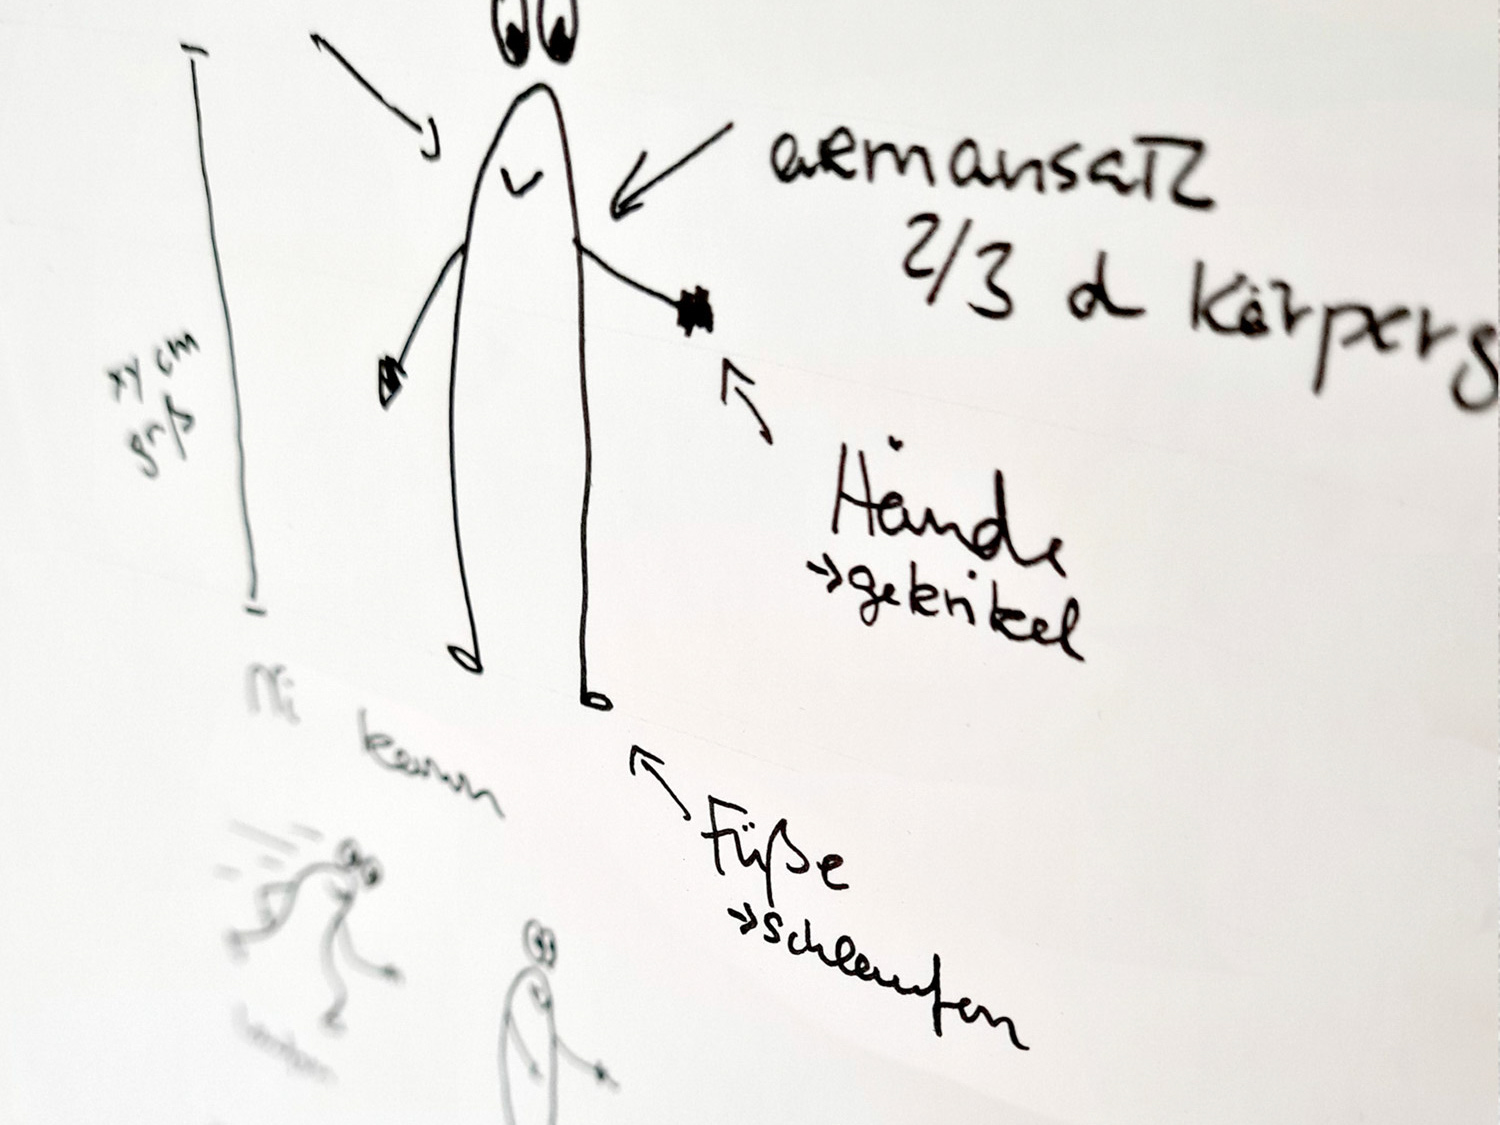 armansatz
2/3 d Körpers
xy cm
groß
Hände
→ gekrikel
kann
Füße
→ schlaufen